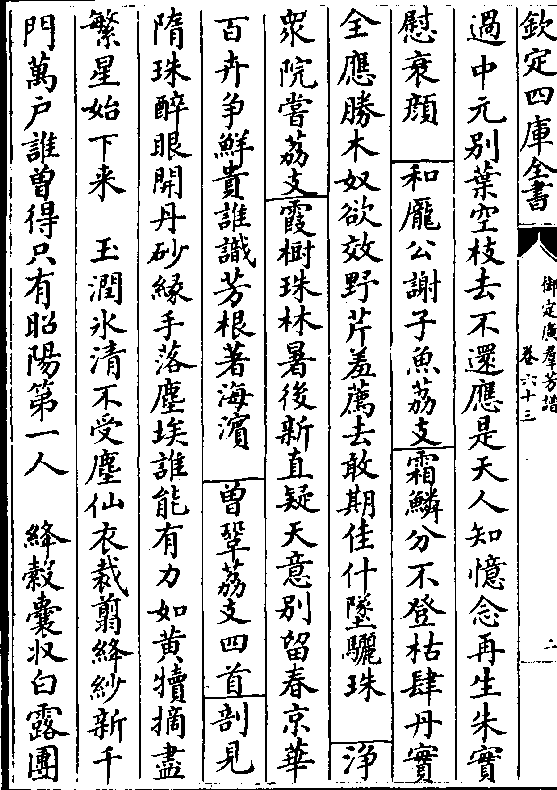 欽定四庫全書
御定廣羣芳譜
卷六十三
二
過中元別葉空枝去不還應是天人知憶念再生朱實
慰衰顔 和龐公謝子魚荔支霜鱗分不登枯肆丹實
全應勝木奴欲效野芹羞薦去敢期佳什墜驪珠 浄
衆院嘗荔支霞樹珠林暑後新直疑天意別留春京華
百卉争鮮貴誰識芳根著海濵 曾鞏荔支四首剖見
隋珠醉眼開丹砂緣手落塵埃誰能有力如黄犢摘盡
繁星始下来 玉潤氷清不受塵仙衣裁翦絳紗新千
門萬戸誰曽得只有昭陽第一人 絳縠囊收白露團